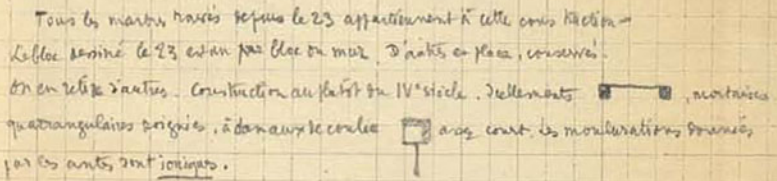 Tous les marbres trouvés depuis le 23 appartiennent à cette construction
Le bloc dessiné le 23 est un gros bloc du mur. D'autres en place, conservés.
On en retire d'autres. Construction au plus tôt du IVe siècle. Scellements , mortaises
quadrangulaires soignées, à canaux de coulée assez court, les moulurations données
par les antes sont ioniques.